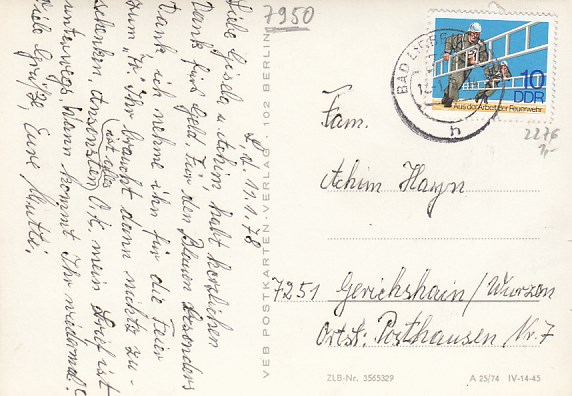 7950
L. d. 11.1.78
Liebe Gisela u. Achim, habt herzlichen
Dank fürs Geld. Für den Blauen besonders
Dank ich nehme ihn für die Feier
zum "70". Ihr braucht dann nichts zu-
schenken. Ansonsten ist alles O.K. mein Brief ist
unterwegs. Wann kommt Ihr wiedermal?
Viele Grüße, Eure Mutti,
VEB POSTKARTEN-VERLAG · 102 BERLIN
BAD LIEBE
h
10
DDR
Aus der Arbeit der Feuerwehr
2276
Fam.
Achim Hayn
7251 Gerichshain/Wurzen
Ortst. Posthausen Nr. 7
ZLB-Nr. 3565329
A 25/74 IV-14-45